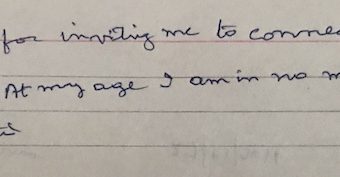 for inviting me to conne
At my age I am in no m